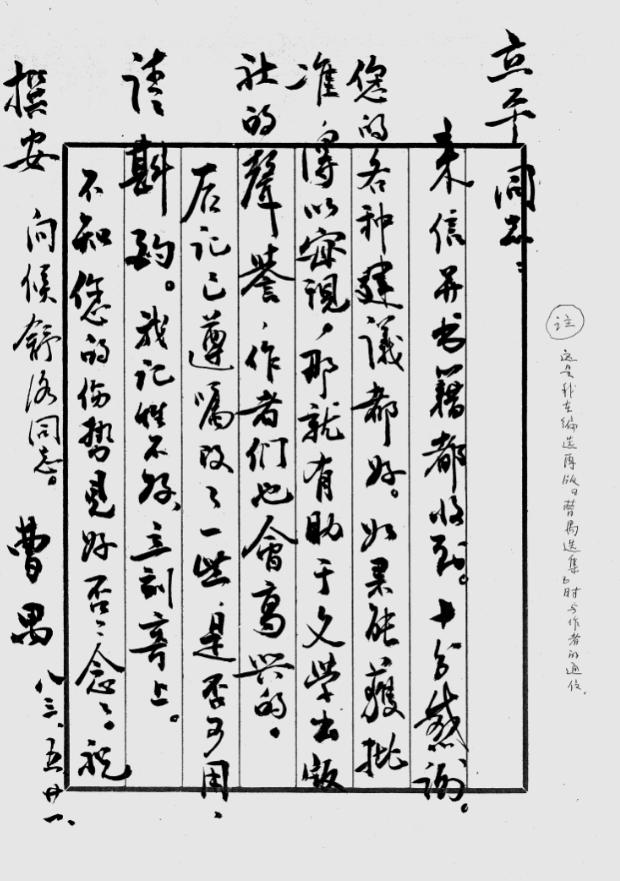 立平同志：
来信并书籍都收到。十分感谢。
您的各种建议都好。如果能获批
准，得以实现，那就有助于文学出版
社的聲誉，作者们也會高兴的。
后记已遵嘱改了一些，是否可用、
请斟酌。我记性不好、立刻寄上。
不知您的伤势見好否？念念。祝
撰安 问候舒济同志。
曹禺
八三、五、廿一、
注
这是我在编选再版《曹禺选集》时与作者的通信。